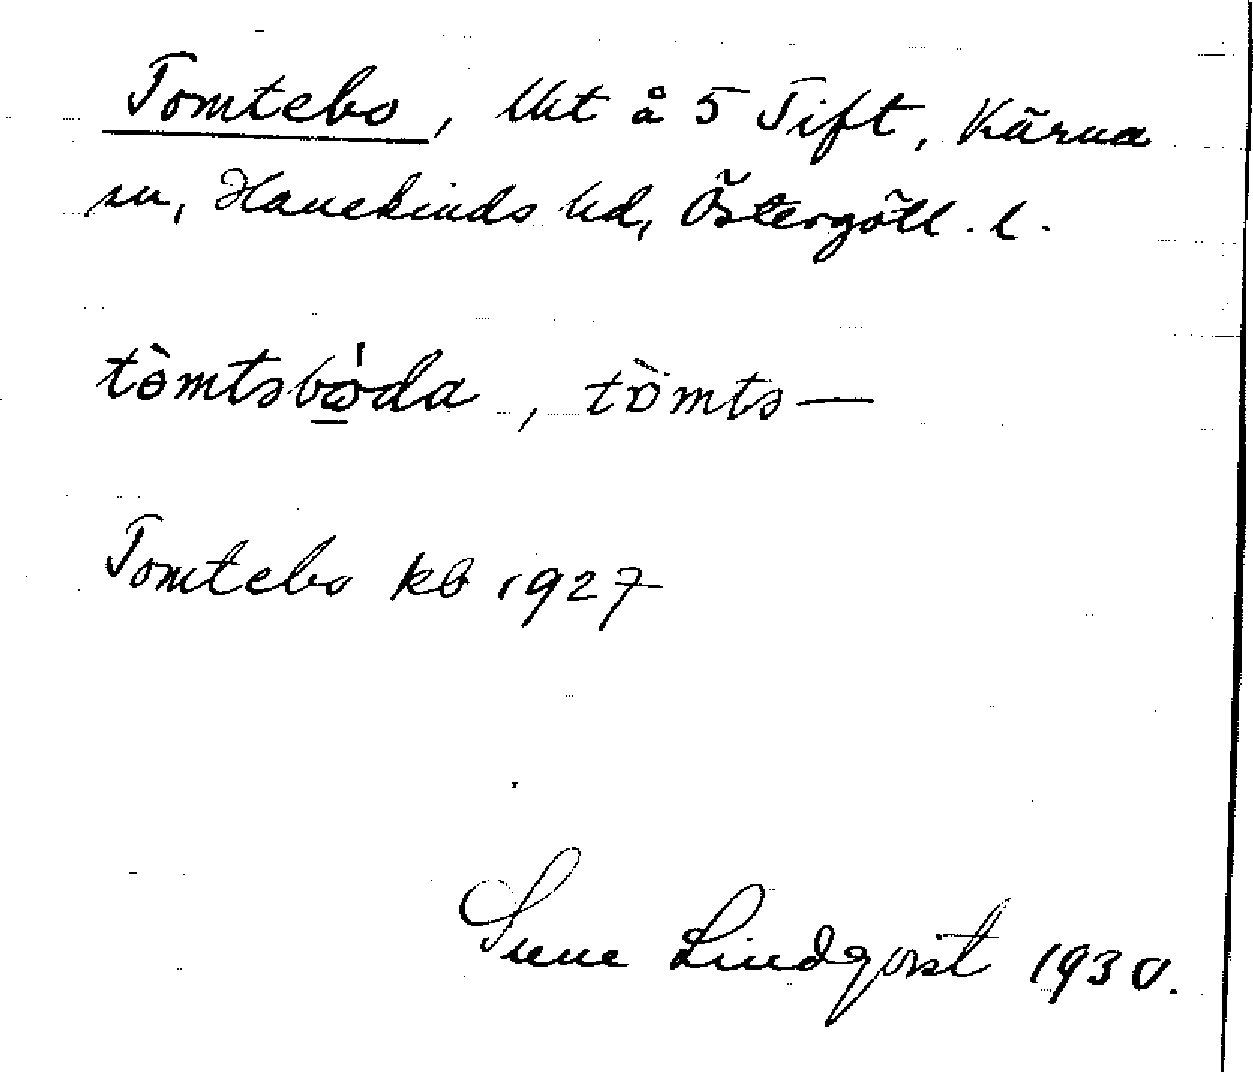 Tomtebo, lht å 5 Tift, Kärna
sn, Hanekinds hd, Östergötl. l.
tòmtsbǿda, tömts—
Tomtebo kb 1927
Sune Lindqvist 1930.